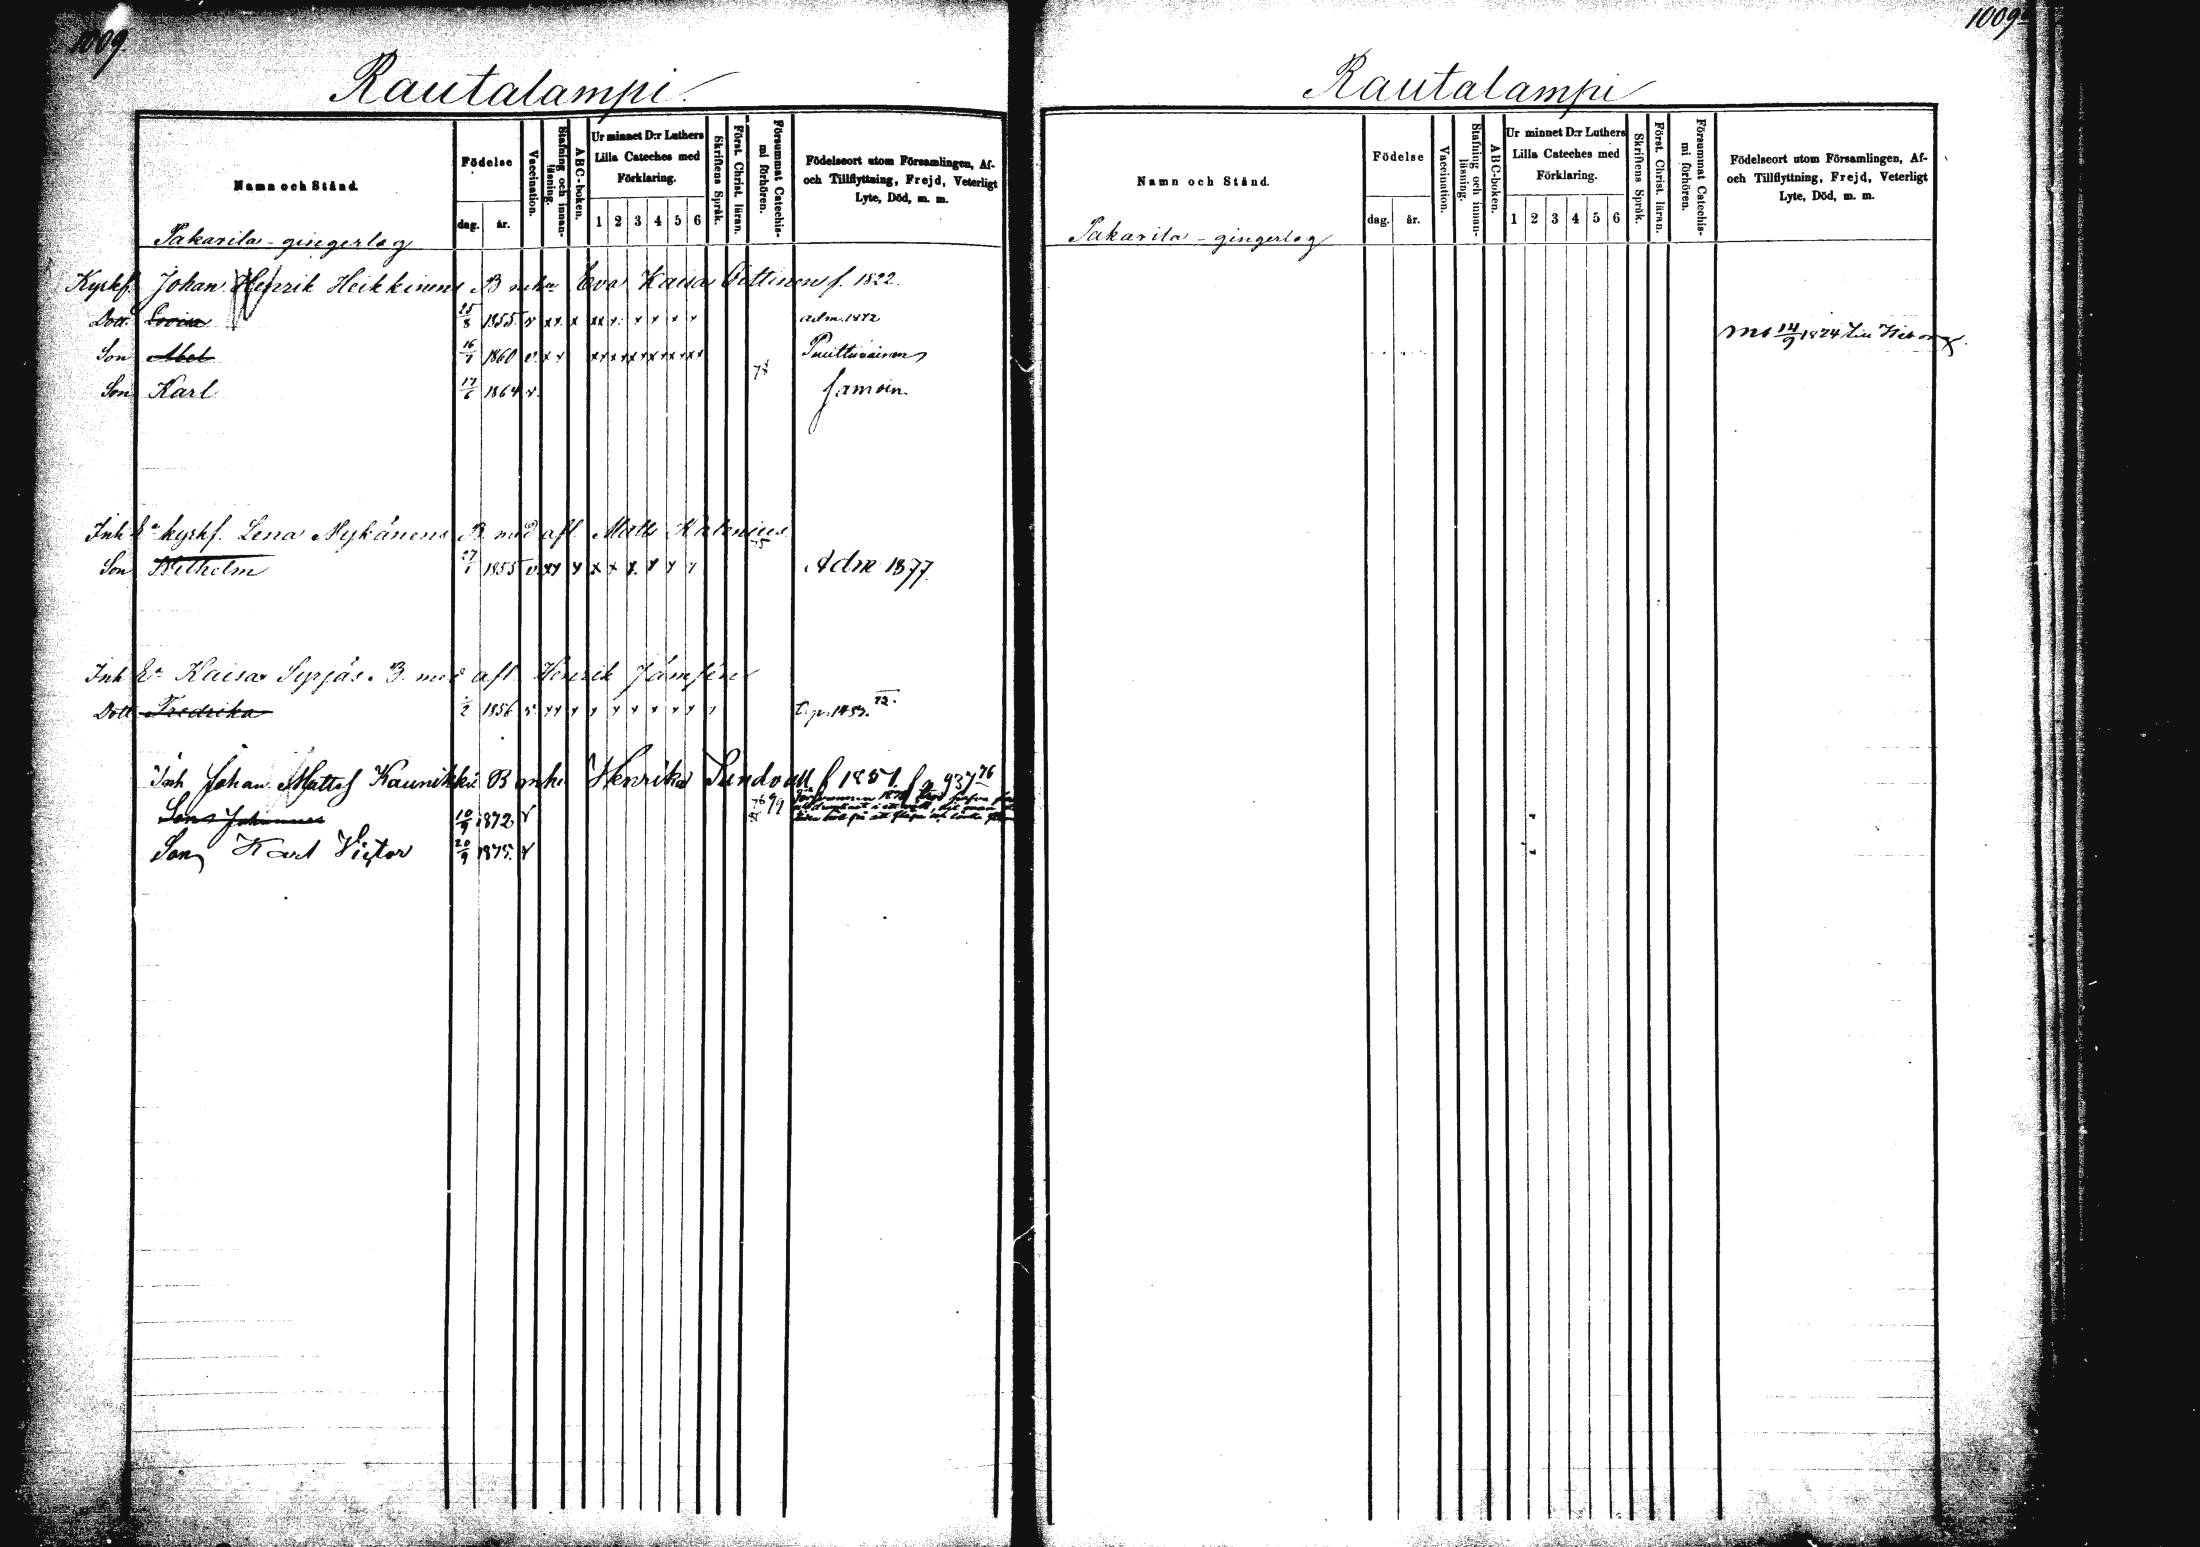 1009
Rautalampi.
Namn och Stånd.
Födelse
dag.
år.
Vaccination.
Stafning och innan-
läsning.
ABC-boken.
Ur minnet D:r Luthers
Lilla Cateches med
Förklaring.
1 2 3 4 5 6
Skriftens Språk.
Först. Christ. läran.
Försummat Catechis-
mi förhören.
Födelseort utom Församlingen, Af-
och Tillflyttning, Frejd, Veterligt
Lyte, Död, m. m.
Pakarila - gingerlag
Kyrkf. Johan Henrik Heikkinens B mhu Eva Kaisa Oittinen f. 1822.
Dott. Lovisa 25/8 1855 v xx x xx x x x x x adm. 1872
Son Abel 16/1 1860 v. xx
Son Karl 17/6 1864 v.
Inh Ea kyrkf. Lena Nykänens B. med afl. Matts
Son Wilhelm 27/1 1855 v. xx x x x x x x x Adm 1877.
Inh Ea Kaisa Syrjäs B. med afl. Henrik Jämsén
Dott Fredrika 1/2 1856 v. xx x x x x x x x
Inh Johan Mattss Kaunikki B mhu Henrika Sundvall f 1851. fr 937 76
Son Johannes 10/9 1872 v
Son Karl Victor 20/9 1875. v
1009
Rautalampi
Namn och Stånd.
Födelse
dag.
år.
Vaccination.
Stafning och innan-
läsning.
ABC-boken.
Ur minnet D:r Luthers
Lilla Cateches med
Förklaring.
1 2 3 4 5 6
Skriftens Språk.
Först. Christ. läran.
Försummat Catechis-
mi förhören.
Födelseort utom Församlingen, Af-
och Tillflyttning, Frejd, Veterligt
Lyte, Död, m. m.
Pakarila - gingerlag
14/9 1874 till Wiborg.